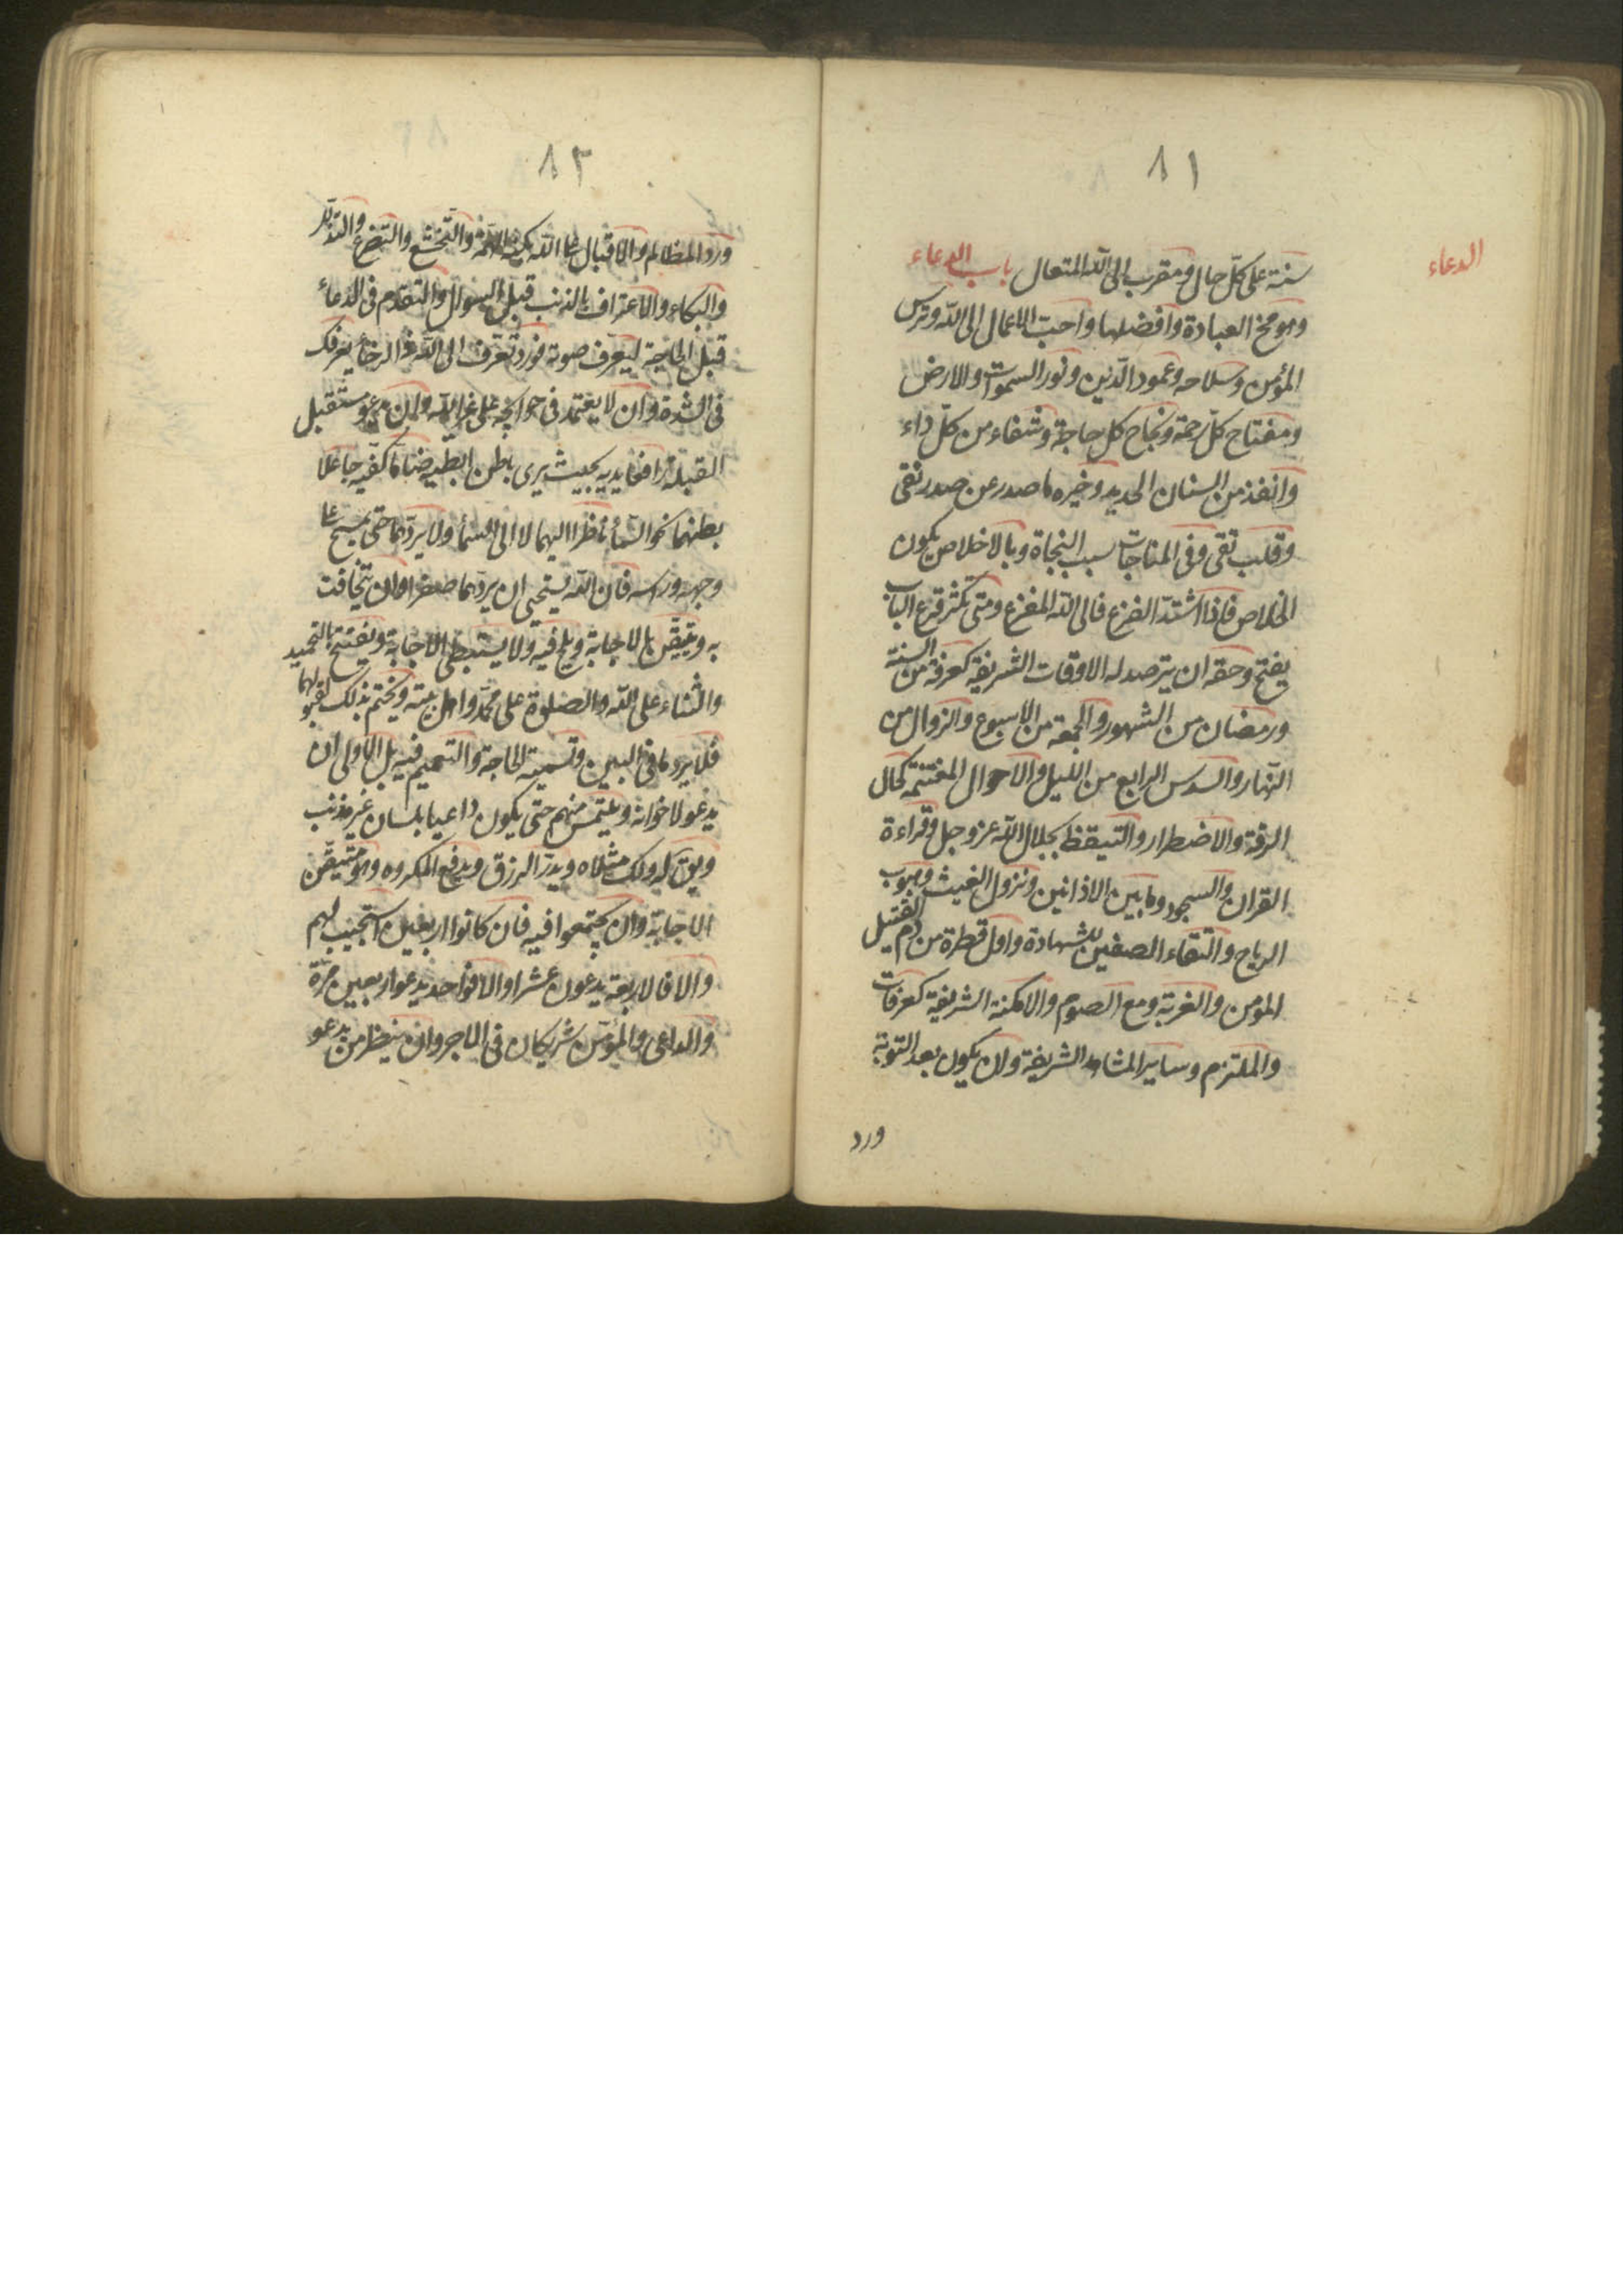 ٨١
الدعاء
سنة على كلّ حال ومقرب الى اللّه المتعال باب الدعاء
وهو مخ العبادة وافضلها واحبّ الاعمال الى اللّه وترس
المؤمن وسلاحه وعمود الدّين ونور السموات والارض
ومفتاح كلّ رحمة ونجاح كل حاجة وشفاء من كلّ داء
وانفذ من السنان الحديد وخيره ما صدر عن صدر نقى
وقلب تقى وفى المناجات سبب النجاة وبالاخلاص يكون
الخلاص فاذا اشتدّ الفزع فالى اللّه المفزع ومتى تكثر قرع الباب
يفتح وحقه ان يترصد له الاوقات الشريفة كعرفة من السنة
ورمضان من الشهور والجمعة من الاسبوع والزوال من
النّهار والسدس الرابع من الليل والاحوال المغتنمة كحال
الرقة والاضطرار والتيقظ بجلال اللّه عز وجل وقراءة
القران والسجود وما بين الاذانين ونزول الغيث وهبوب
الرياح والتقاء الصفين للشهادة واول قطرة من دم القتيل
المؤمن والغربة ومع الصوم والامكنة الشريفة كعرفات
والملتزم وساير المشاهد الشريفة وان يكون بعد التوبة
ورد
٨٢
ورد المظالم والاقبال على اللّه بكنه الهمّة والتخشع والتضرع والتذلّل
والبكاء والاعتراف بالذنب قبل السوال والتقدم فى الدعاء
قبل الحاجة ليعرف صوته فورد تعرّف الى اللّه فى الرخاء يعرفك
فى الشدة وان لا يعتمد فى حوائجه على غير اللّه وان يدعو مستقبل
القبلة رافعا يديه بحيث يرى باطن ابطيه ضاما كفّيه جاعلا
بطنهما نحو السّماء ناظرا اليهما لا الى السماء ولا يردّهما حتى يمسح على
وجهه وراسه فان اللّه يستحيى ان يردّهما صفرا وان يتخافت
به ويتيقّن بالاجابة ويلح فيه ولا يستبطى الاجابة ويفتتح بالتحميد
والثناء على اللّه والصلوة على محمّد واهل بيته ويختم بذلك لقبولهما
فلا يرد ما فى البين وتسمية الحاجة والتعميم فيه بل الاولى ان
يدعو لاخوانه ويلتمس منهم حتى يكون داعيا بلسان غير مذنب
ويق له ولك مثلاه ويدرّ الرزق ويدفع المكروه وهو متيقّن
الاجابة وان يجتمعوا فيه فان كانوا اربعين استجيب لهم
والا فالاربعة يدعون عشرا والا فواحد يدعو اربعين مرّة
والداعى والمؤمّن شريكان فى الاجر وان ينظر من يدعو